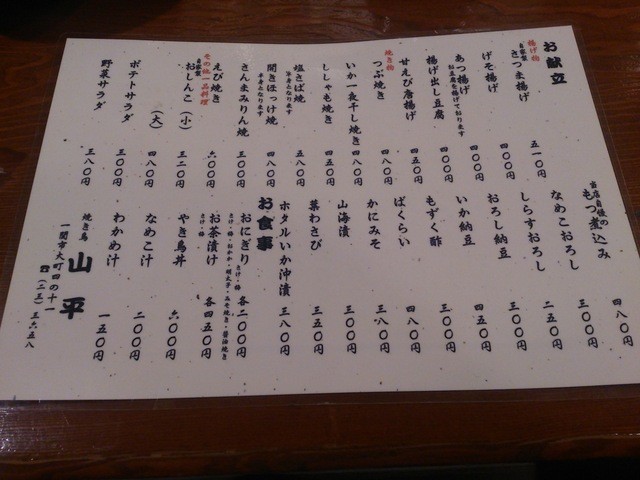 お献立
揚げ物
自家製 さつま揚げ 五一〇円
げそ揚げ 四〇〇円
あつ揚げ 四〇〇円
お豆腐を揚げております
揚げ出し豆腐 四〇〇円
甘えび唐揚げ 四五〇円
焼き物
つぶ焼き 四八〇円
いか一夜干し焼き 四八〇円
ししゃも焼き 四五〇円
塩さば焼 五八〇円
半身となります
開きほっけ焼 四八〇円
半身となります
さんまみりん焼 三〇〇円
えび焼き 六〇〇円
その他一品料理
自家製 おしんこ (小) 三二〇円
(大) 四八〇円
ポテトサラダ 三〇〇円
野菜サラダ 三八〇円
当店自慢の
もつ煮込み 四八〇円
なめこおろし 三〇〇円
しらすおろし 二五〇円
おろし納豆 三五〇円
いか納豆 四五〇円
もずく酢 三〇〇円
ばくらい 三八〇円
かにみそ 三八〇円
山海漬 三〇〇円
葉わさび 三五〇円
ホタルいか沖漬 三八〇円
お食事
おにぎり 各二〇〇円
さけ・梅
さけ・梅・おかか・明太子・みそ焼き・醤油焼き
お茶漬け 各四五〇円
さけ・梅
やき鳥丼 六〇〇円
なめこ汁 二〇〇円
わかめ汁 一五〇円
焼き鳥 山平
一関市大町四の十一
☎(二五)三六五八